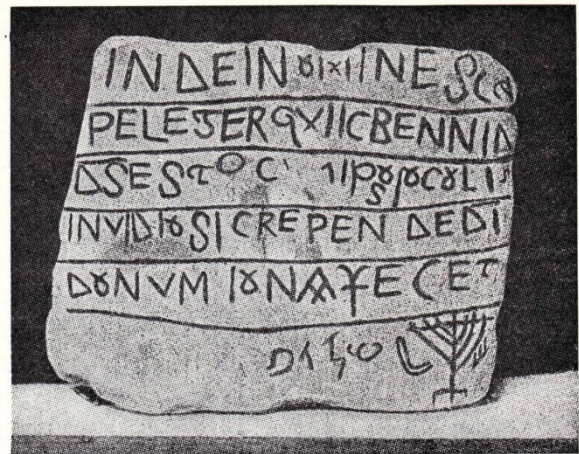 INDEINȣMINE SCO
PELESTERQVIICBENNID
DSESTO C IIPSȣ ȣCȣLIS
INVIDIȣSI CREPEN DEDI
DȣNVM IȣNA FECET
שלום